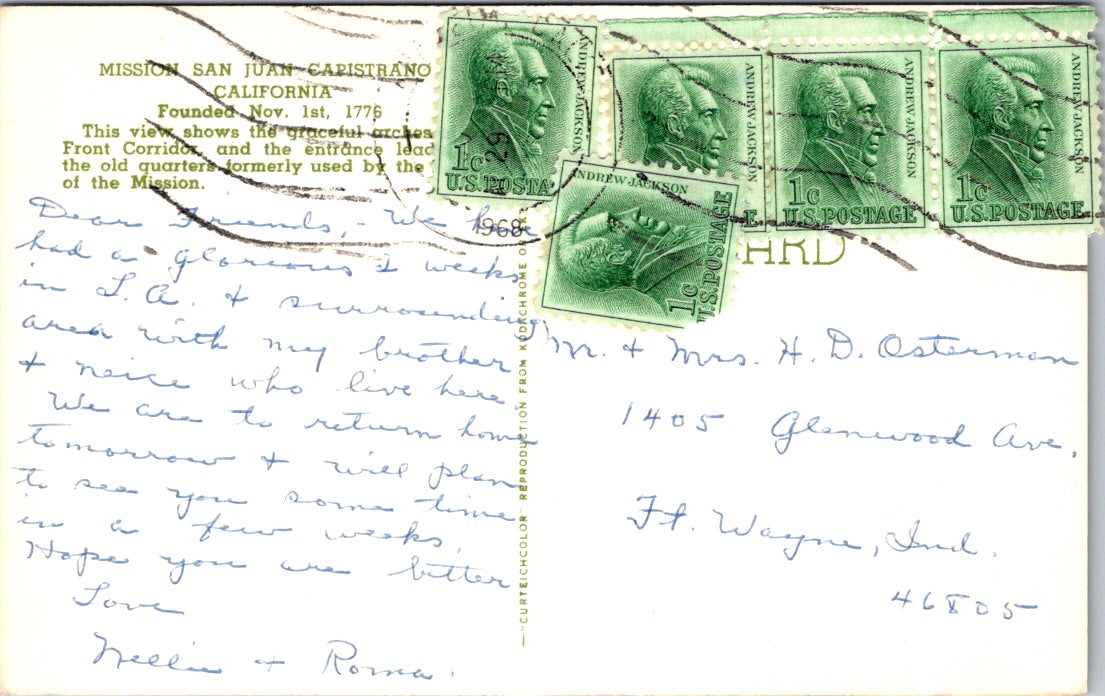 MISSION SAN JUAN CAPISTRANO
CALIFORNIA
Founded Nov. 1st, 1776
This view shows the graceful arches
Front Corridor, and the entrance lead
the old quarters formerly used by the
of the Mission.
Dear Friends, - We have
had a glorious 2 weeks
in L.A. & surrounding
area with my brother
& neice who live here.
We are to return home
tomorrow & will plan
to see you some time
in a few weeks.
Hope you are better
Love
Nellie & Roma.
"CURTEICHCOLOR" REPRODUCTION FROM KODACHROME OR
ANDREW JACKSON
1c
U.S. POSTA
ANDREW JACKSON
E
ANDREW JACKSON
1c
U.S. POSTAGE
ANDREW JACKSON
1c
U.S. POSTAGE
ANDREW JACKSON
1c
U.S. POSTAGE
29
1968
ARD
Mr. & Mrs. H. D. Osterman
1405 Glenwood Ave.
Ft. Wayne, Ind.
46805